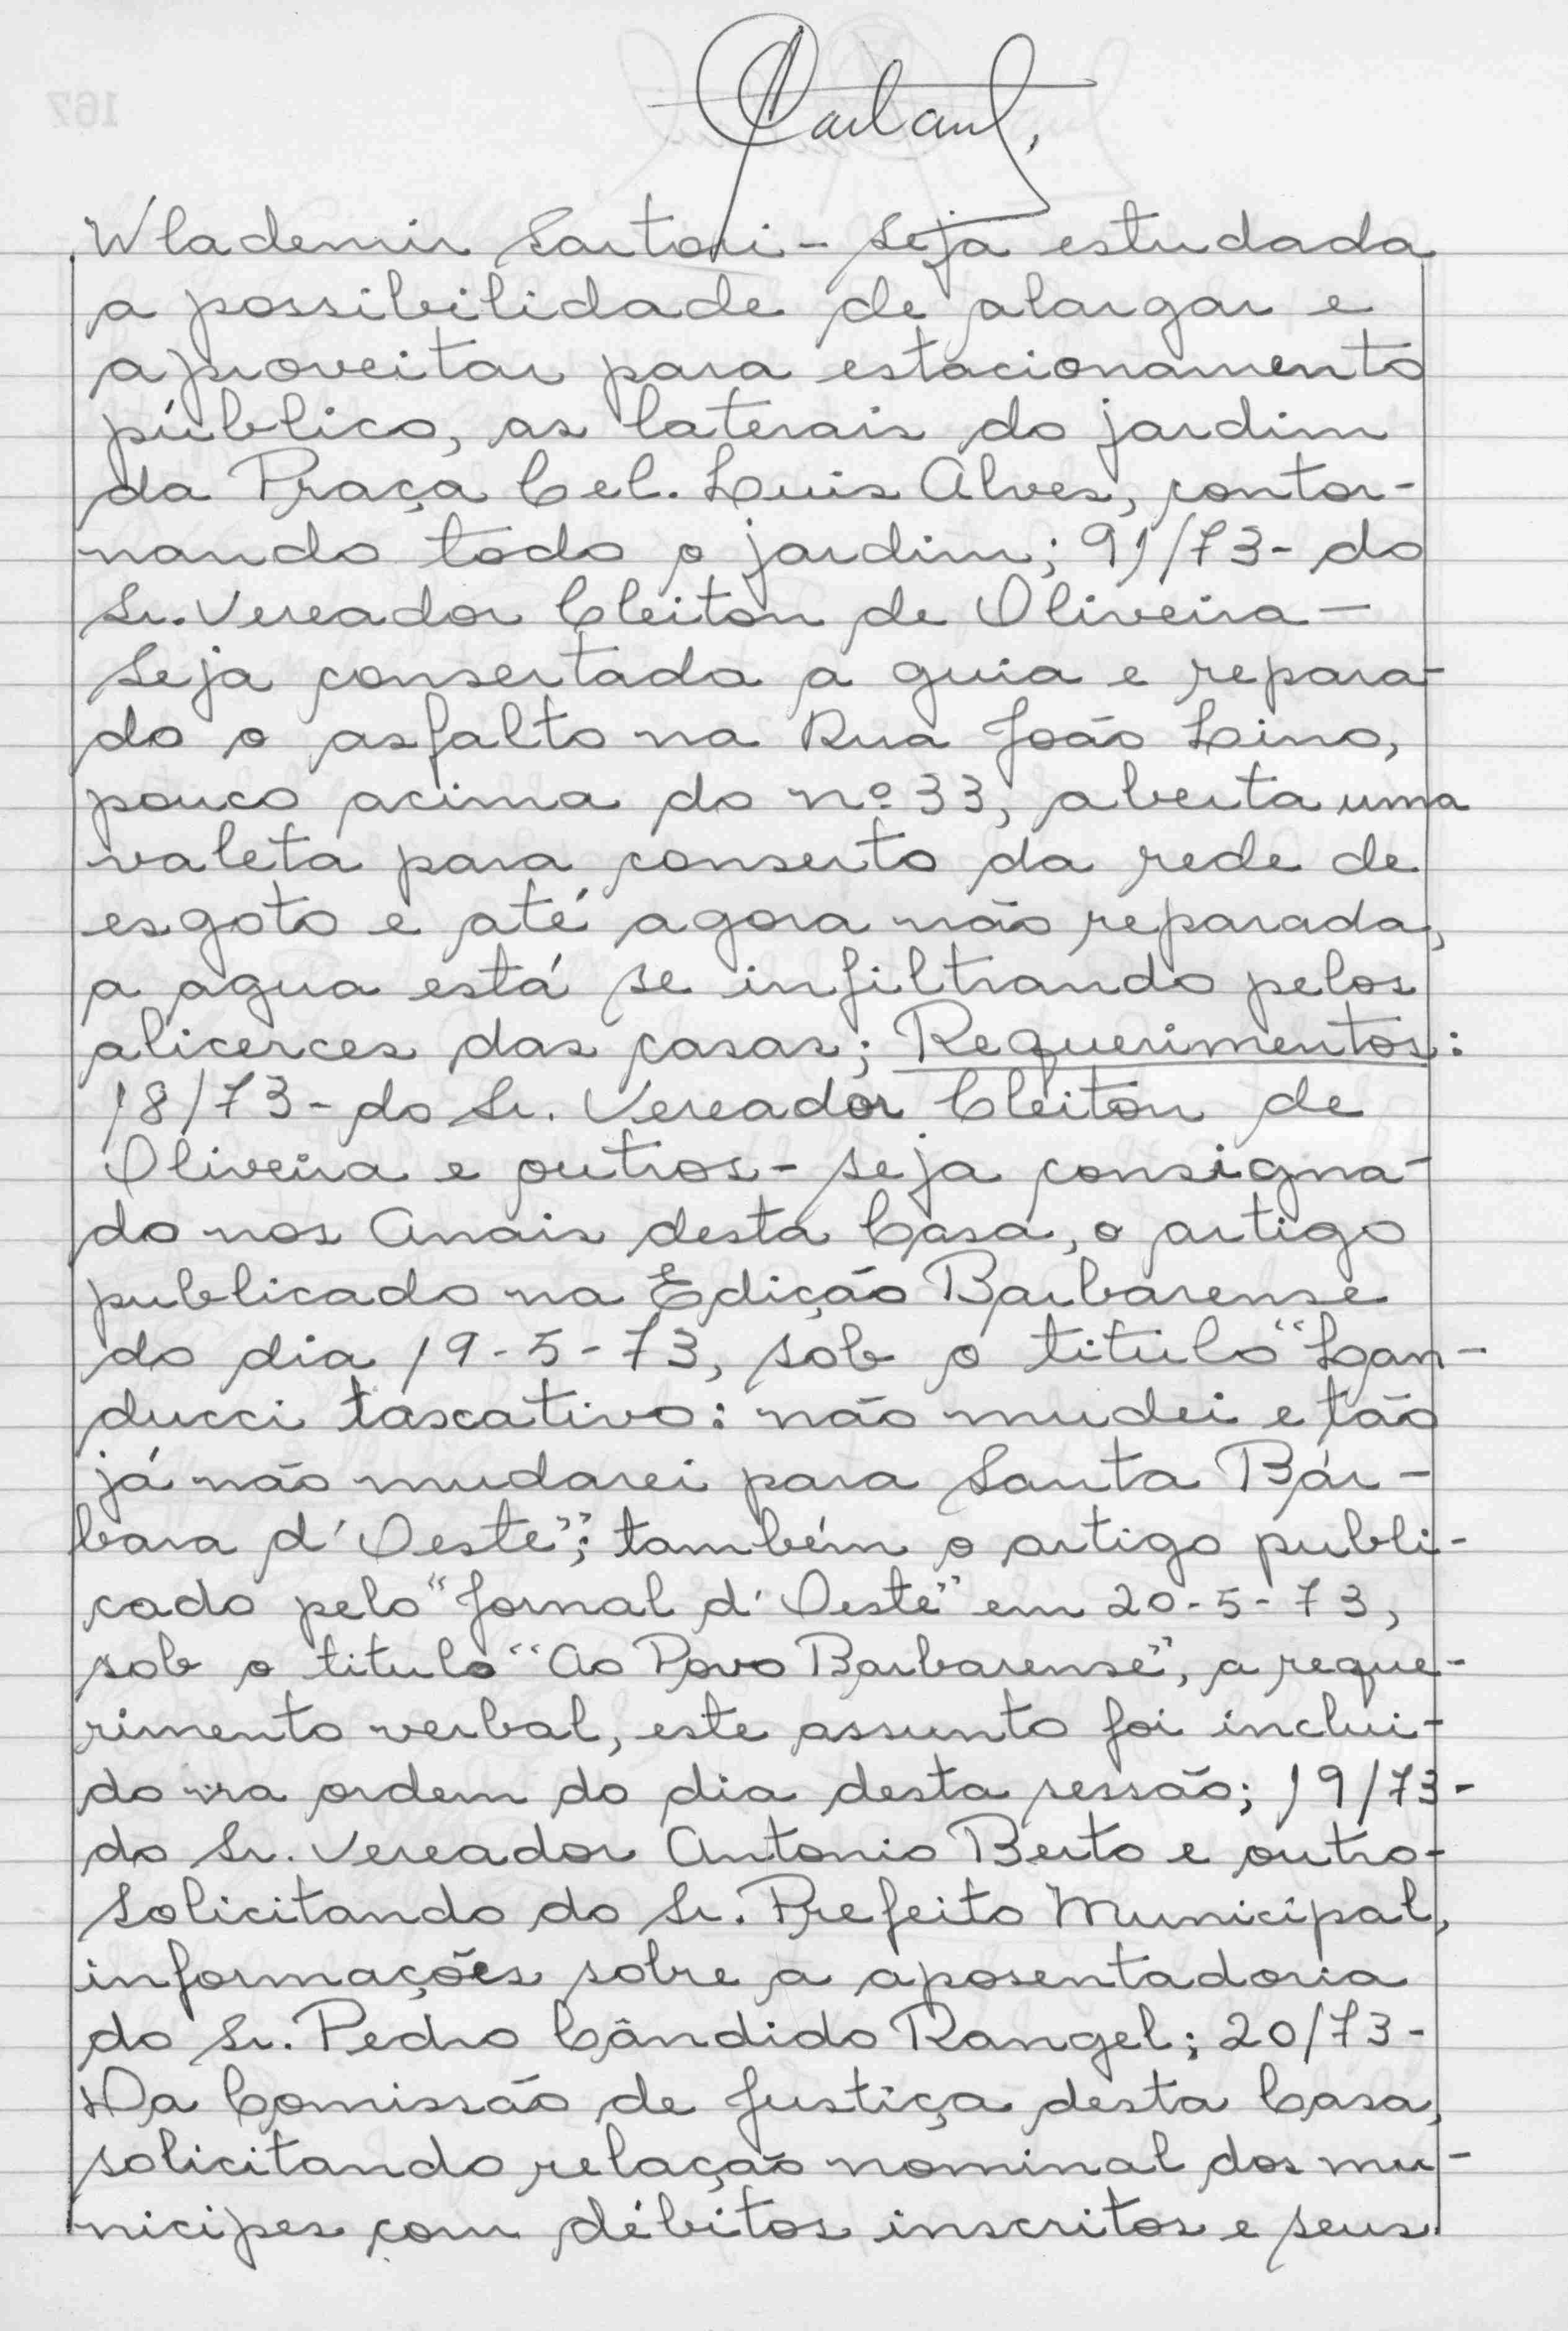 Wlademir Sartori - seja estudada
a possibilidade de alargar e
aproveitar para estacionamento
público, as laterais do jardim
da Praça Cel. Luis Alves, contor-
nando todo o jardim; 91/73 - do
Sr. Vereador Cleiton de Oliveira -
Seja consertada a guia e repara-
do o asfalto na Rua João Lino,
pouco acima do nº 33, aberta uma
valeta para conserto da rede de
esgoto e até agora não reparada,
a agua está se infiltrando pelos
alicerces das casas; Requerimentos:
18/73 - do Sr. Vereador Cleiton de
Oliveira e outros - seja consigna-
do nos Anais desta Casa, o artigo
publicado na Edição Barbarense
do dia 19-5-73, sob o titulo "Lan-
ducci tascativo: não mudei e tão
já não mudarei para Santa Bár-
bara d'Oeste"; também o artigo publi-
cado pelo "Jornal d'Oeste" em 20-5-73,
sob o titulo "Ao Povo Barbarense", a reque-
rimento verbal, este assunto foi inclui-
do na ordem do dia desta sessão; 19/73 -
do Sr. Vereador Antonio Berto e outro -
Solicitando do Sr. Prefeito Municipal,
informações sobre a aposentadoria
do Sr. Pedro Cândido Rangel; 20/73 -
Da Comissão de Justiça desta Casa,
solicitando relação nominal dos mu-
nicipes com débitos inscritos e seus